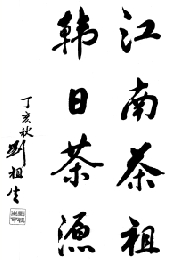 江南茶祖
韩日茶源
丁亥秋
刘祖生